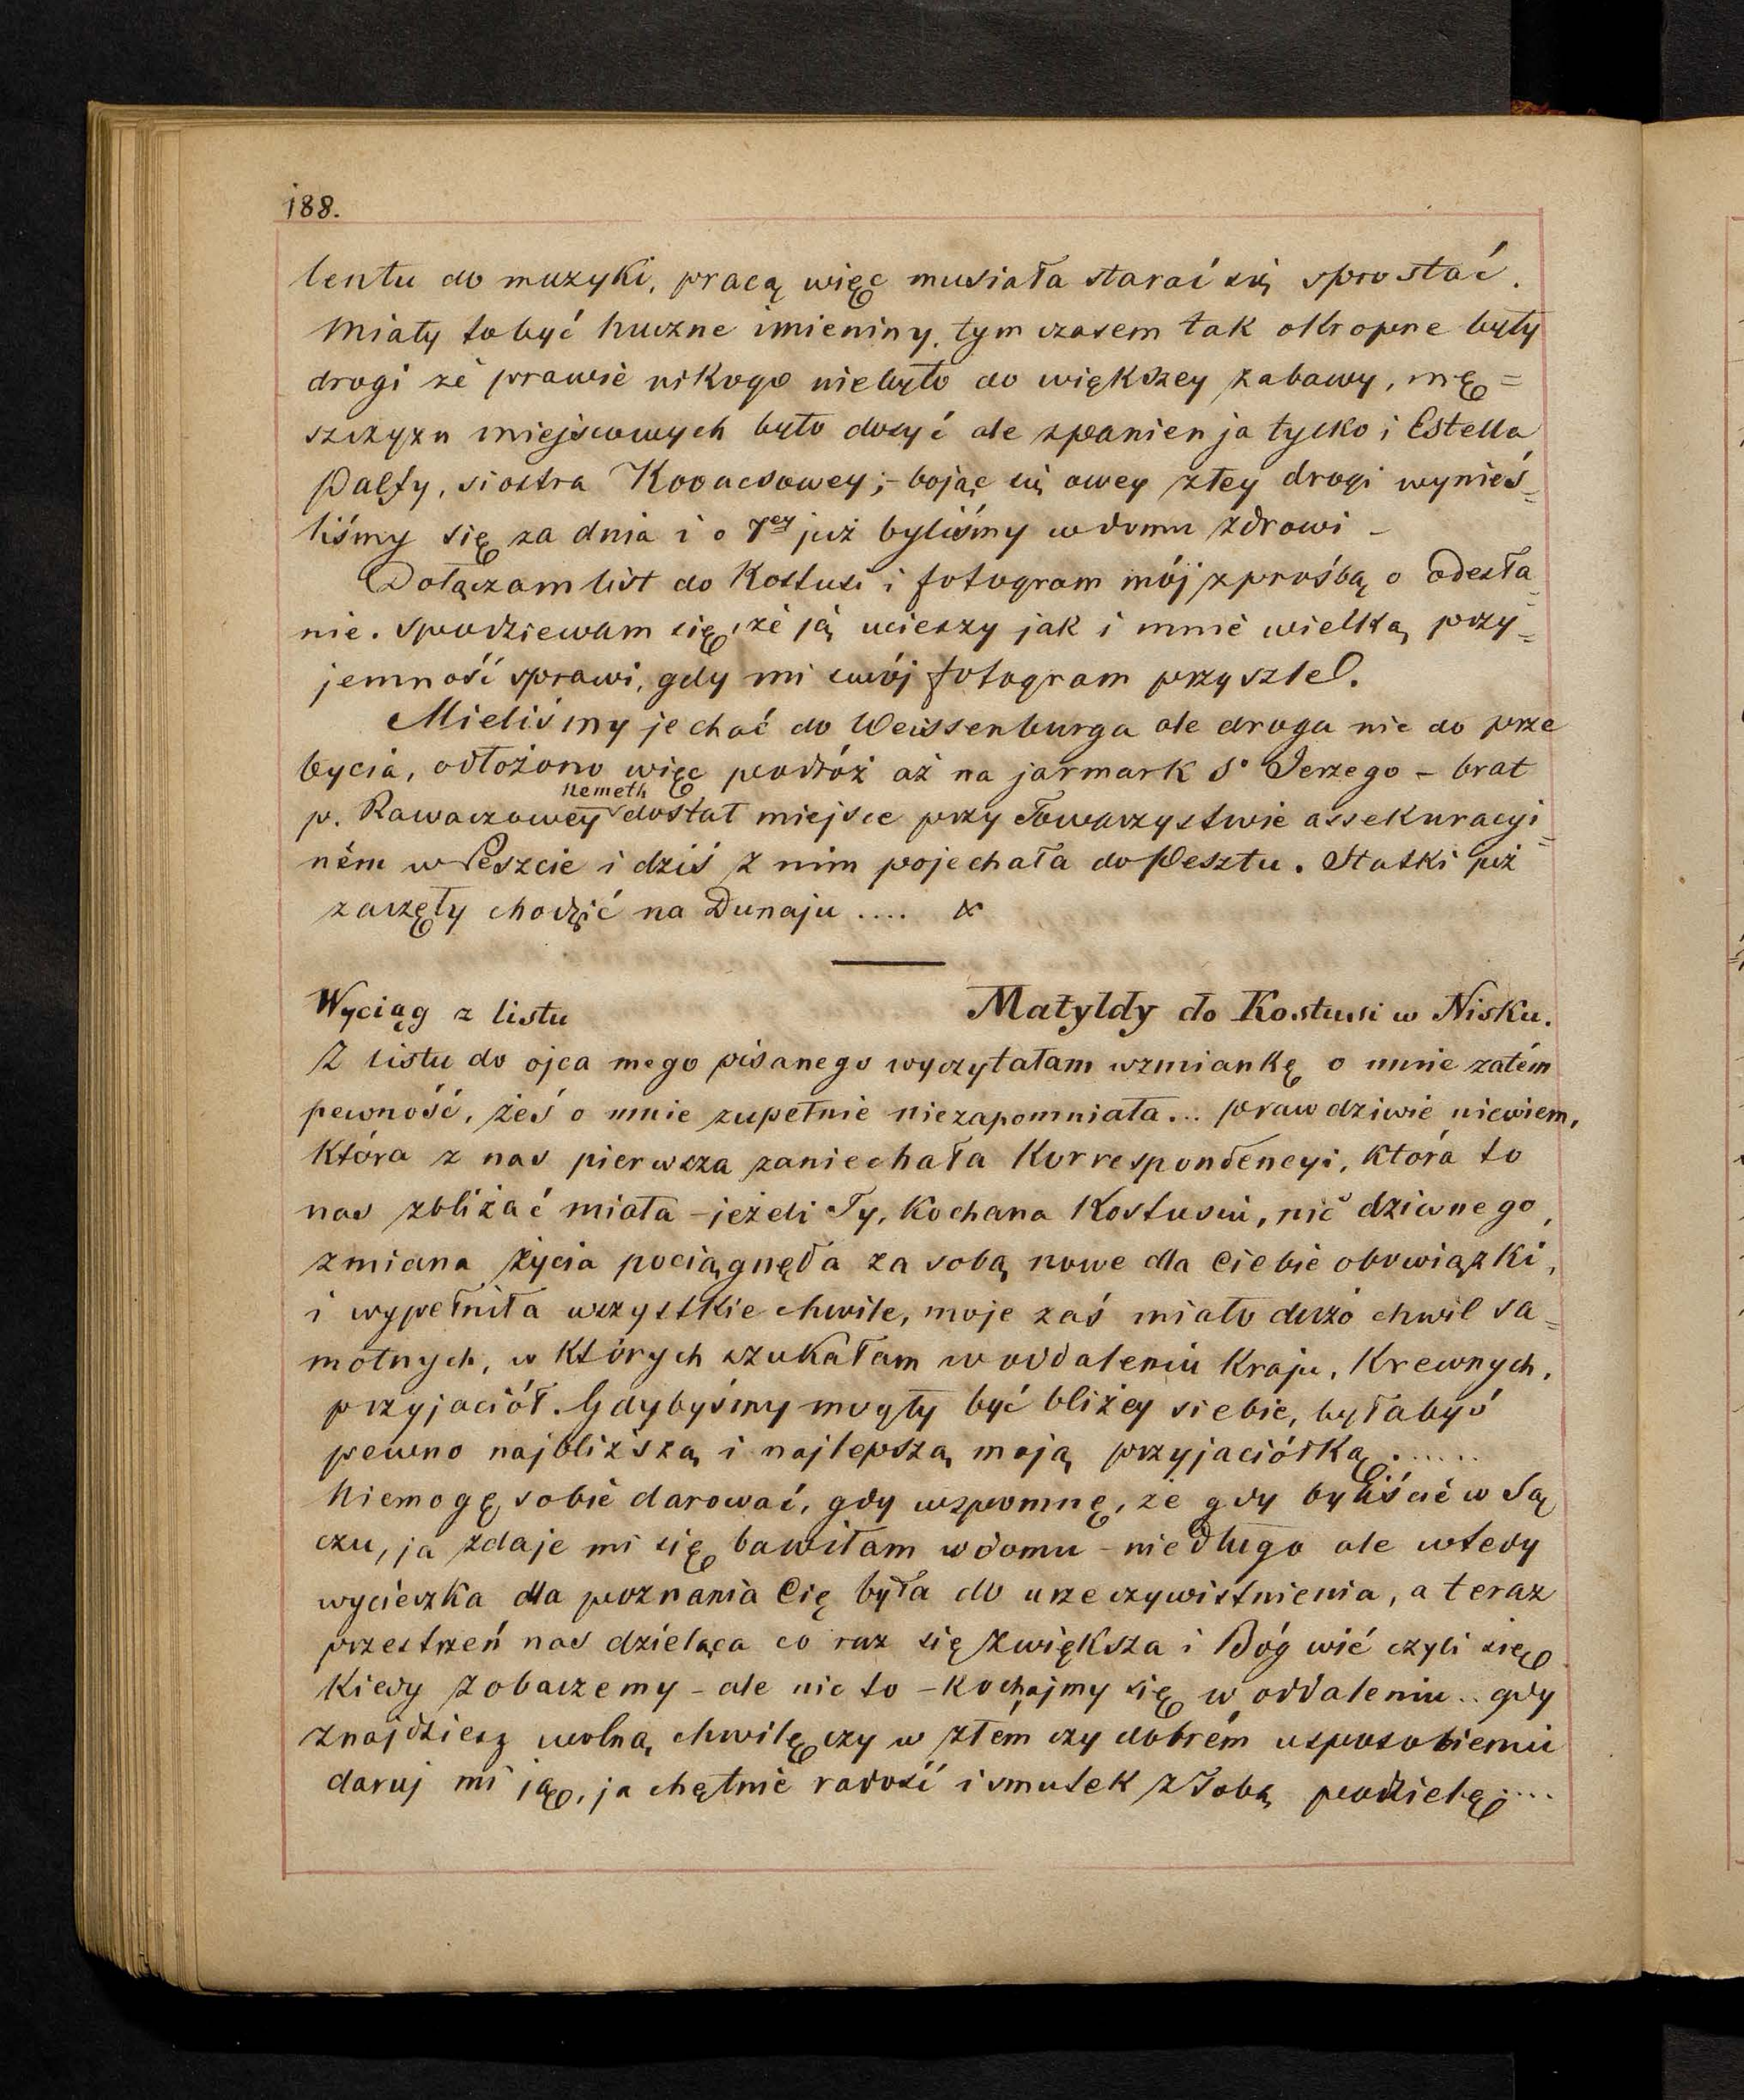 188.
lentu do muzyki, pracą więc musiała starać się sprostać.
Miały to być huczne imieniny, tym czasem tak okropne były
drogi że prawie nikogo niebyło do większey zabawy, mę=
szczyzn miejscowych było dosyć ale zpanien ja tylko i Estella
Palfy, siostra Kovacsowey; - bojąc się owey złey drogi wynieś=
liśmy się za dnia i o 7ey już byliśmy w domu zdrowi -
Dołączam list do Kostusi i fotogram mój z prośbą o odesła=
nie. Spodziewam się, że ją ucieszy jak i mnie wielką przy=
jemność sprawi, gdy mi swój fotogram przyszle.
Mieliśmy jechać do Weissenburga ale droga nie do prze
bycia, odłożono więc podróż aż na jarmark So Jerzego - brat
Nemeth
p. Rawaczowey dostał miejsce przy Towarzystwie assekuracyi=
ném w Peszcie i dziś z nim pojechała do Pesztu. Statki już
zaczęły chodzić na Dunaju .... x
Wyciąg z listu Matyldy do Kostusi w Nisku.
Z listu do ojca mego pisanego wyczytałam wzmiankę o mnie zatém
pewność, żeś o mnie zupełnie niezapomniała... prawdziwie niewiem,
która z nas pierwsza zaniechała Korrespondencyi, która to
nas zbliżać miała - jeżeli Ty, Kochana Kostusiu, nic dziwnego,
zmiana życia pociągnęła za sobą nowe dla Ciebie obowiązki,
i wypełniła wszystkie chwile, moje zaś miało dużo chwil sa=
motnych, w których szukałam w oddaleniu Kraju, Krewnych,
przyjaciół. Gdybyśmy mogły być bliżey siebie, byłabyś
pewno najbliższą i najlepszą moją przyjaciółką......
Niemogę sobie darować, gdy wspomnę, że gdy byliście w Są
czu, ja zdaje mi się bawiłam w domu - niedługo ale wtedy
wycieczka dla poznania Cię była do urzeczywistnienia, a teraz
przestrzeń nas dzieląca co raz się zwiększa i Bóg wié czyli się
kiedy zobaczemy - ale nic to - kochajmy się w oddaleniu .. gdy
znajdziesz wolną chwilę czy w złém czy dobrém usposobieniu
daruj mi ją, ja chętnie radość i smutek z Tobą podzielę....